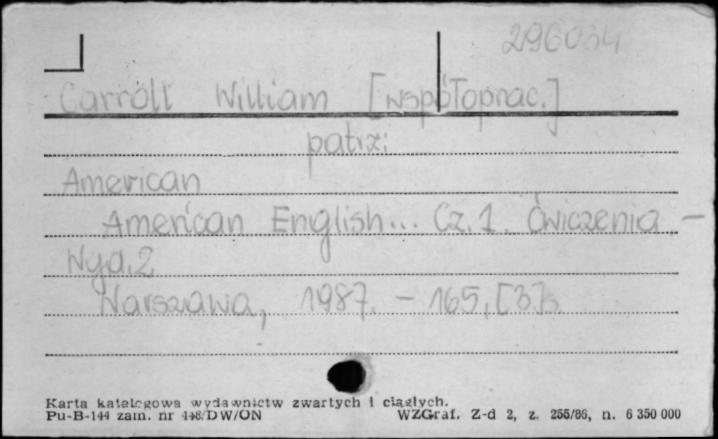 296034
Carroll William [współoprac.]
patrz:
American
American English... Cz. 1. Ćwiczenia. -
Wyd. 2
Warszawa, 1987. - 165, [3] s.
Karta katalogowa wydawnictw zwartych i ciągłych.
Pu-B-144 zam. nr /DW/ON WZGraf. Z-d 2, z. 255/86, n. 6 350 000